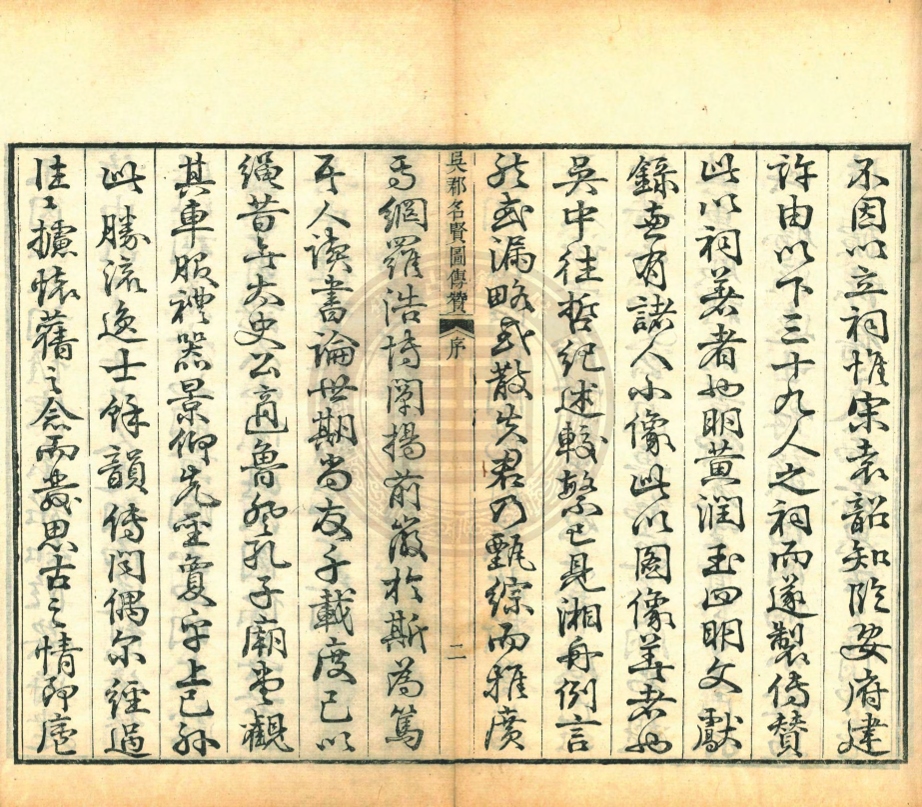 不因以立祠惟宋袁韶知臨安府建
許由以下三十九人之祠而遂製傳贊
此以祠著者也明黃潤玉四明文獻
錄並有諸人小像此以圖像著者也
吳中往哲紀述較繁已見湘舟例言
然或漏略或散失君乃甄綜而推廣
吳郡名賢圖傳贊 序 二
焉網羅浩博闡揚前徽於斯為篤
吾人讀書論世期尚友千載度已以
繩昔者太史公適魯登孔子廟堂觀
其車服禮器景仰先聖夐乎上已外
此勝流逸士餘韻傳聞偶尔經過
往々攄懷舊之念而發思古之情即